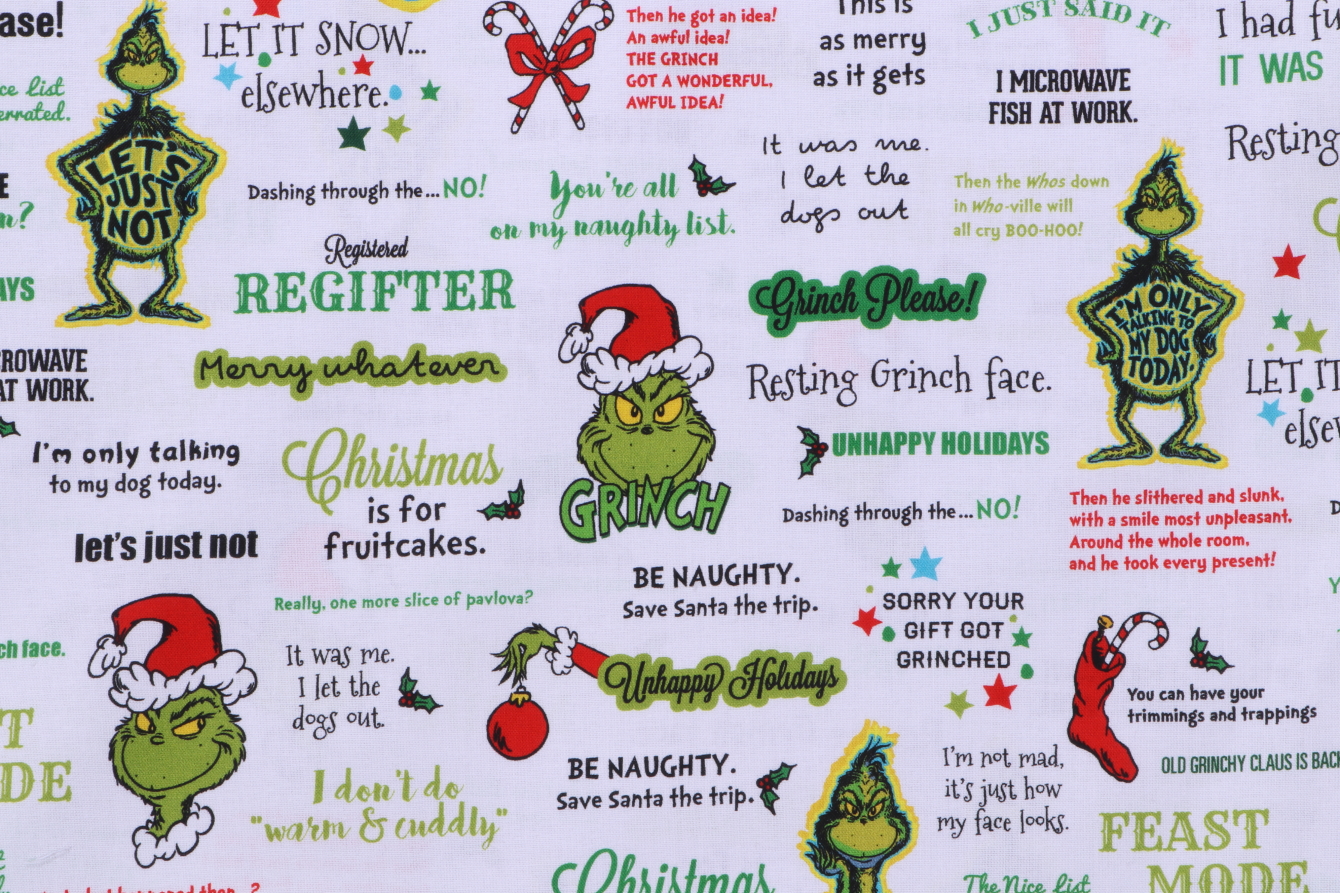 ase!
ce list
errated.
LET'S
JUST
NOT
LET IT SNOW...
elsewhere.
Then he got an idea!
An awful idea!
THE GRINCH
GOT A WONDERFUL,
AWFUL IDEA!
This is
as merry
as it gets
I JUST SAID IT
I MICROWAVE
FISH AT WORK.
I had fu
IT WAS
Resting
It was me.
I let the
dogs out
Dashing through the... NO!
You're all
on my naughty list.
Then the Whos down
in Who-ville will
all cry BOO-HOO!
E
n?
AYS
Registered
REGIFTER
Grinch Please!
I'M ONLY
TALKING TO
MY DOG
TODAY.
CROWAVE
AT WORK.
Merry whatever
Resting Grinch face.
LET IT
elsew
I'm only talking
to my dog today.
Christmas
is for
fruitcakes.
GRINCH
UNHAPPY HOLIDAYS
Dashing through the... NO!
Then he slithered and slunk,
with a smile most unpleasant,
Around the whole room,
and he took every present!
let's just not
Really, one more slice of pavlova?
BE NAUGHTY.
Save Santa the trip.
SORRY YOUR
GIFT GOT
GRINCHED
ch face.
It was me.
I let the
dogs out.
Unhappy Holidays
You can have your
trimmings and trappings
T
DE
I don't do
"warm & cuddly"
BE NAUGHTY.
Save Santa the trip.
I'm not mad,
it's just how
my face looks.
OLD GRINCHY CLAUS IS BACK
FEAST
MODE
Christmas
The Nice List